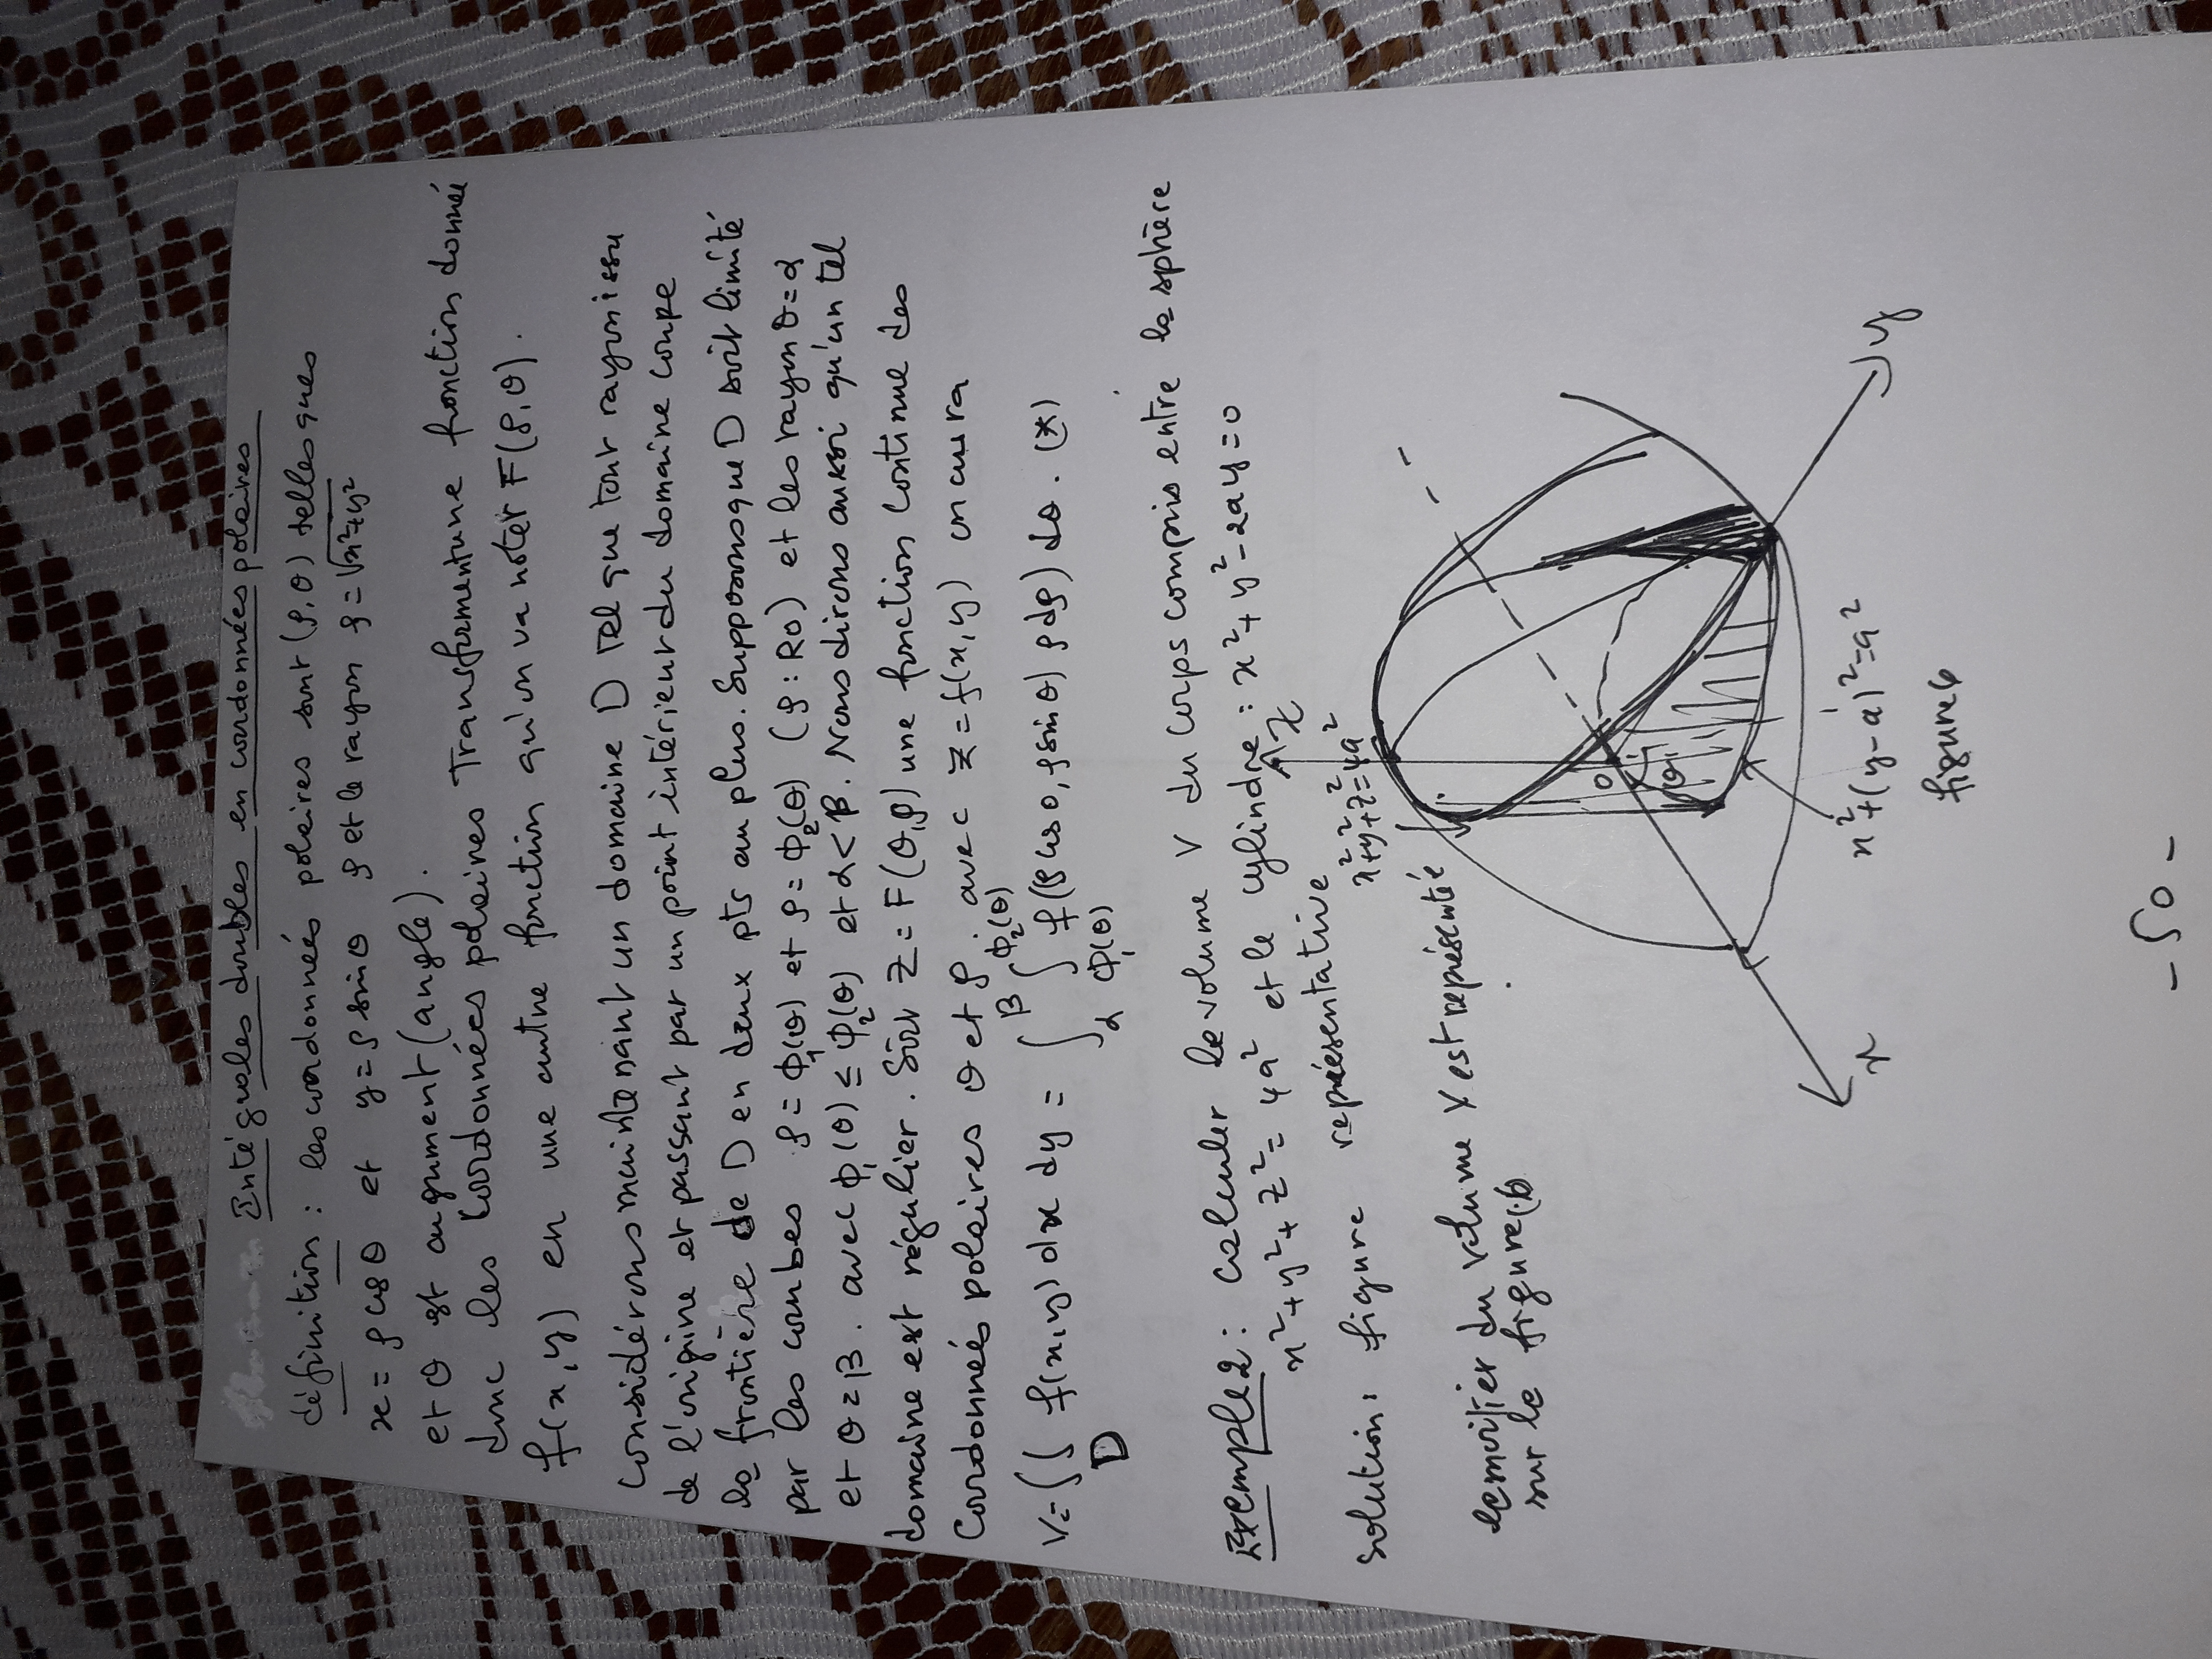 Intégrales doubles en coordonnées polaires
définition : les coordonnées polaires sont (ρ,θ) telles ques
x = ρ cosθ et y = ρ sinθ ρ et le rayon ρ = √x²+y²
et θ est augument (angle).
donc les coordonnées polaires Transforment une fonction donné
f(x,y) en une autre fonction qu'on va noter F(ρ,θ).
Considérons maintenant un domaine D Tel que tout rayon issu
de l'origine et passant par un point intérieur du domaine coupe
la frontière de D en deux pts au plus. Supposons que D soit limité
par les courbes ρ = Φ₁(θ) et ρ = Φ₂(θ) (ρ : RO) et les rayon θ = α
et θ = β. avec Φ₁(θ) ≤ Φ₂(θ) et α < β. Nous dirons aussi qu'un tel
domaine est régulier. Soit Z = F(θ,ρ) une fonction continue des
Coordonnées polaires θ et ρ avec Z = f(x,y) on aura
V = ∫∫_D f(x,y) dx dy = ∫_α^β ∫_Φ₁(θ)^Φ₂(θ) f(ρ cosθ, ρ sinθ) ρ dρ) dθ. (*)
Exemple 2 : calculer le volume V du corps compris entre la sphère
x²+y²+z² = 4a² et le cylindre : x²+y²-2ay=0
solution : figure représentative
x²+y²+z²=4a²
z
le moitier du volume V est représenté
sur la figure 6
0
θ
x
y
x²+(y-a)²=a²
figure 6
- 50 -